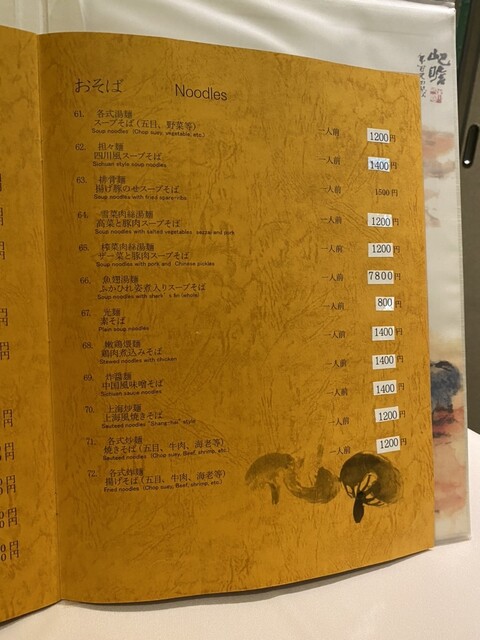 おそば Noodles
61. 各式湯麺
スープそば(五目、野菜等) 一人前 1200円
Soup noodles (Chop suey, vegetable, etc.)
62. 担々麺
四川風スープそば 一人前 1400円
Sichuan style soup noodles
63. 排骨麺
揚げ豚のせスープそば 一人前 1500円
Soup noodles with fried spare-ribs
64. 雪菜肉絲湯麺
高菜と豚肉スープそば 一人前 1200円
Soup noodles with salted vegetables and pork
65. 榨菜肉絲湯麺
ザー菜と豚肉スープそば 一人前 1200円
Soup noodles with pork and Chinese pickles
66. 魚翅湯麺
ふかひれ姿煮入りスープそば 一人前 7800円
Soup noodles with shark's fin (whole)
67. 光麺
素そば 一人前 800円
Plain soup noodles
68. 嫩鶏煨麺
鶏肉煮込みそば 一人前 1400円
Stewed noodles with chicken
69. 炸醤麺
中国風味噌そば 一人前 1400円
Sichuan sauce noodles
70. 上海炒麺
上海風焼きそば 一人前 1400円
Sauteed noodles "Shang-hai" style
71. 各式炒麺
焼きそば(五目、牛肉、海老等) 一人前 1200円
Sauteed noodles (Chop suey, Beef, shrimp, etc.)
72. 各式炸麺
揚げそば(五目、牛肉、海老等) 一人前 1200円
Fried noodles (Chop suey, Beef, shrimp, etc.)